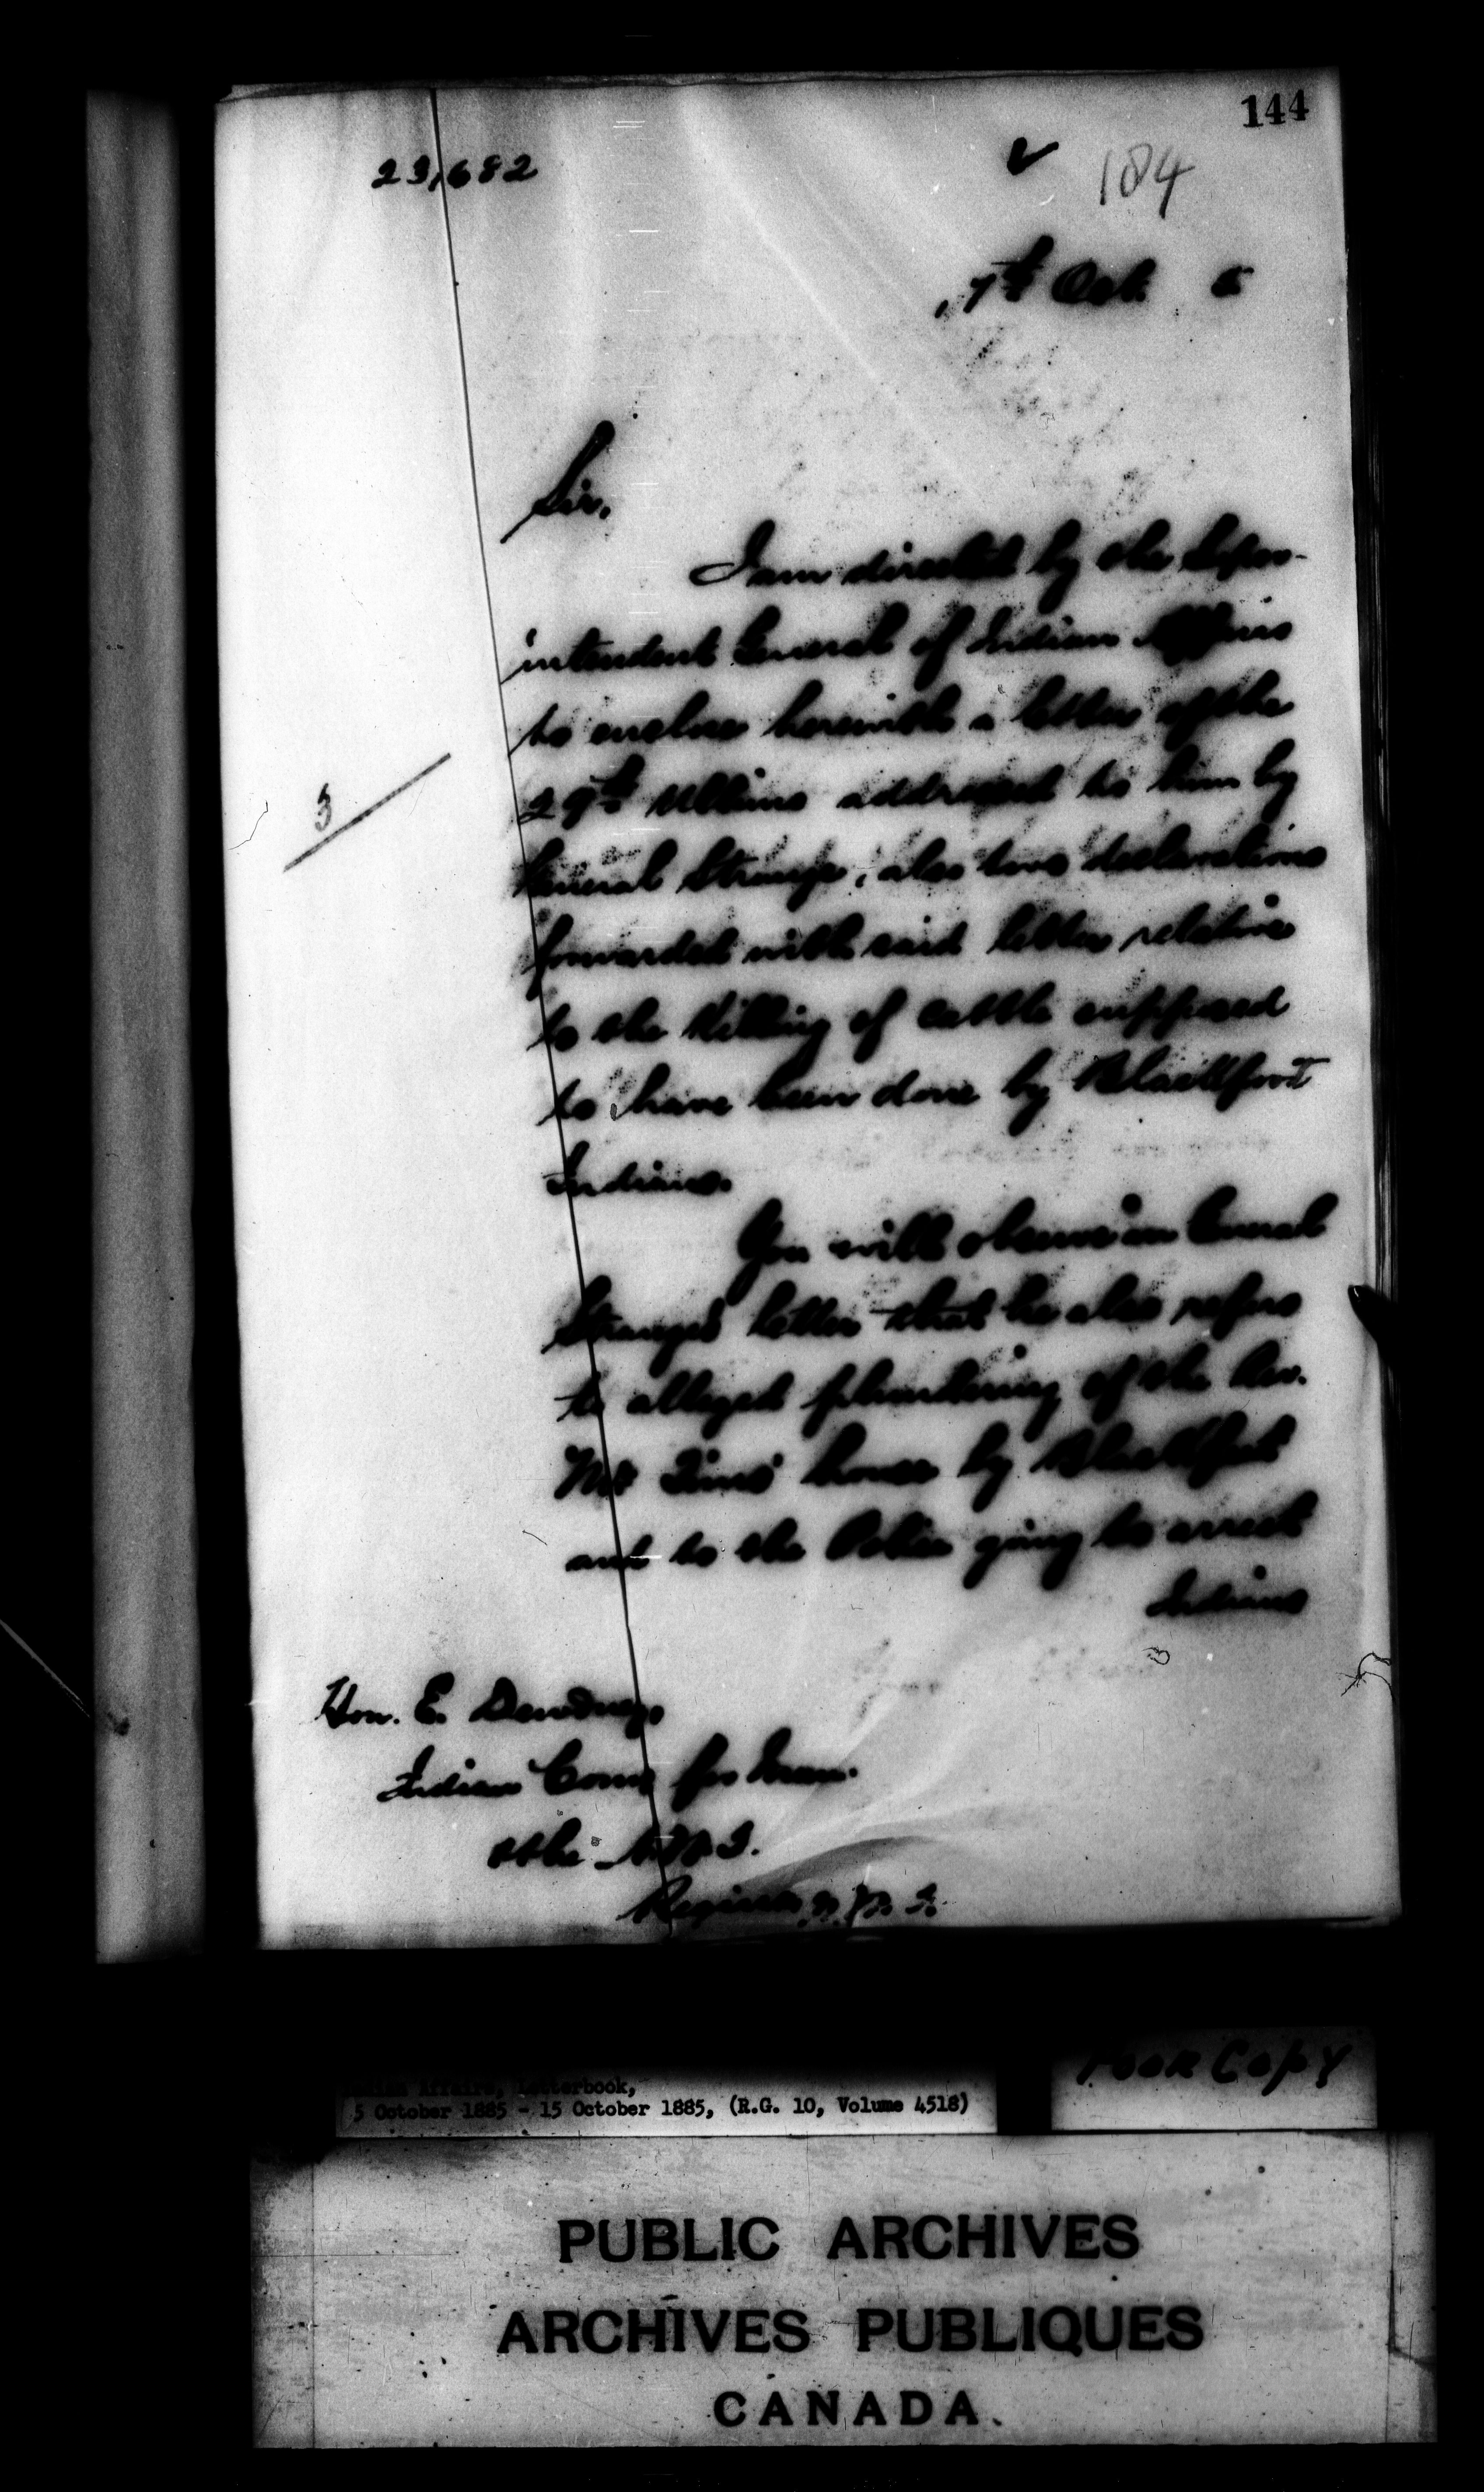 144
23,682
184
7th Oct. 5
Sir,
I am directed by the Super-
intendent General of Indian Affairs
to enclose herewith a letter of the
29th Ultimo addressed to him by
General Strange, also two declarations
forwarded with said letter relative
to the Killing of Cattle supposed
to have been done by Blackfoot
Indians.
You will observe in General
Strange's letter that he also refers
to alleged plundering of the Rev.
Mr Tims' house by Blackfeet
and to the Police going to arrest
Indians
3
Hon. E. Dewdney,
Indian Comr for Man.
& the N.W.T.
Regina, N.W.T.
Poor Copy
Indian Affairs, Letterbook,
5 October 1885 - 15 October 1885, (R.G. 10, Volume 4518)
PUBLIC ARCHIVES
ARCHIVES PUBLIQUES
CANADA